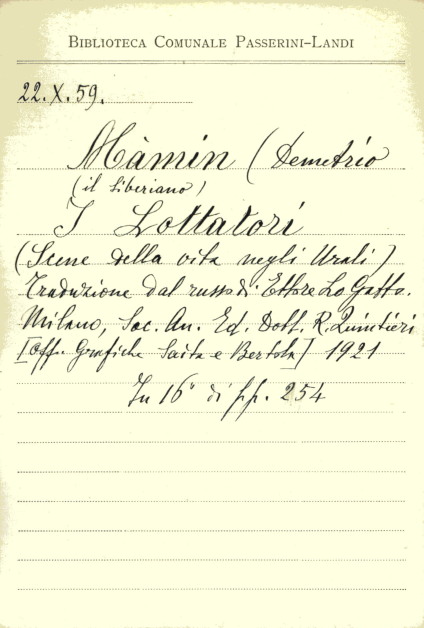 BIBLIOTECA COMUNALE PASSERINI-LANDI
22.X.59.
Màmin (Demetrio
(il Siberiano)
I Lottatori
(Scene della vita negli Urali)
Traduzione dal russo di Ettore Lo Gatto.
Milano, Soc. An. Ed. Dott. R. Quintieri
[Off. Grafiche Saita e Bertola] 1921
In 16° di pp. 254